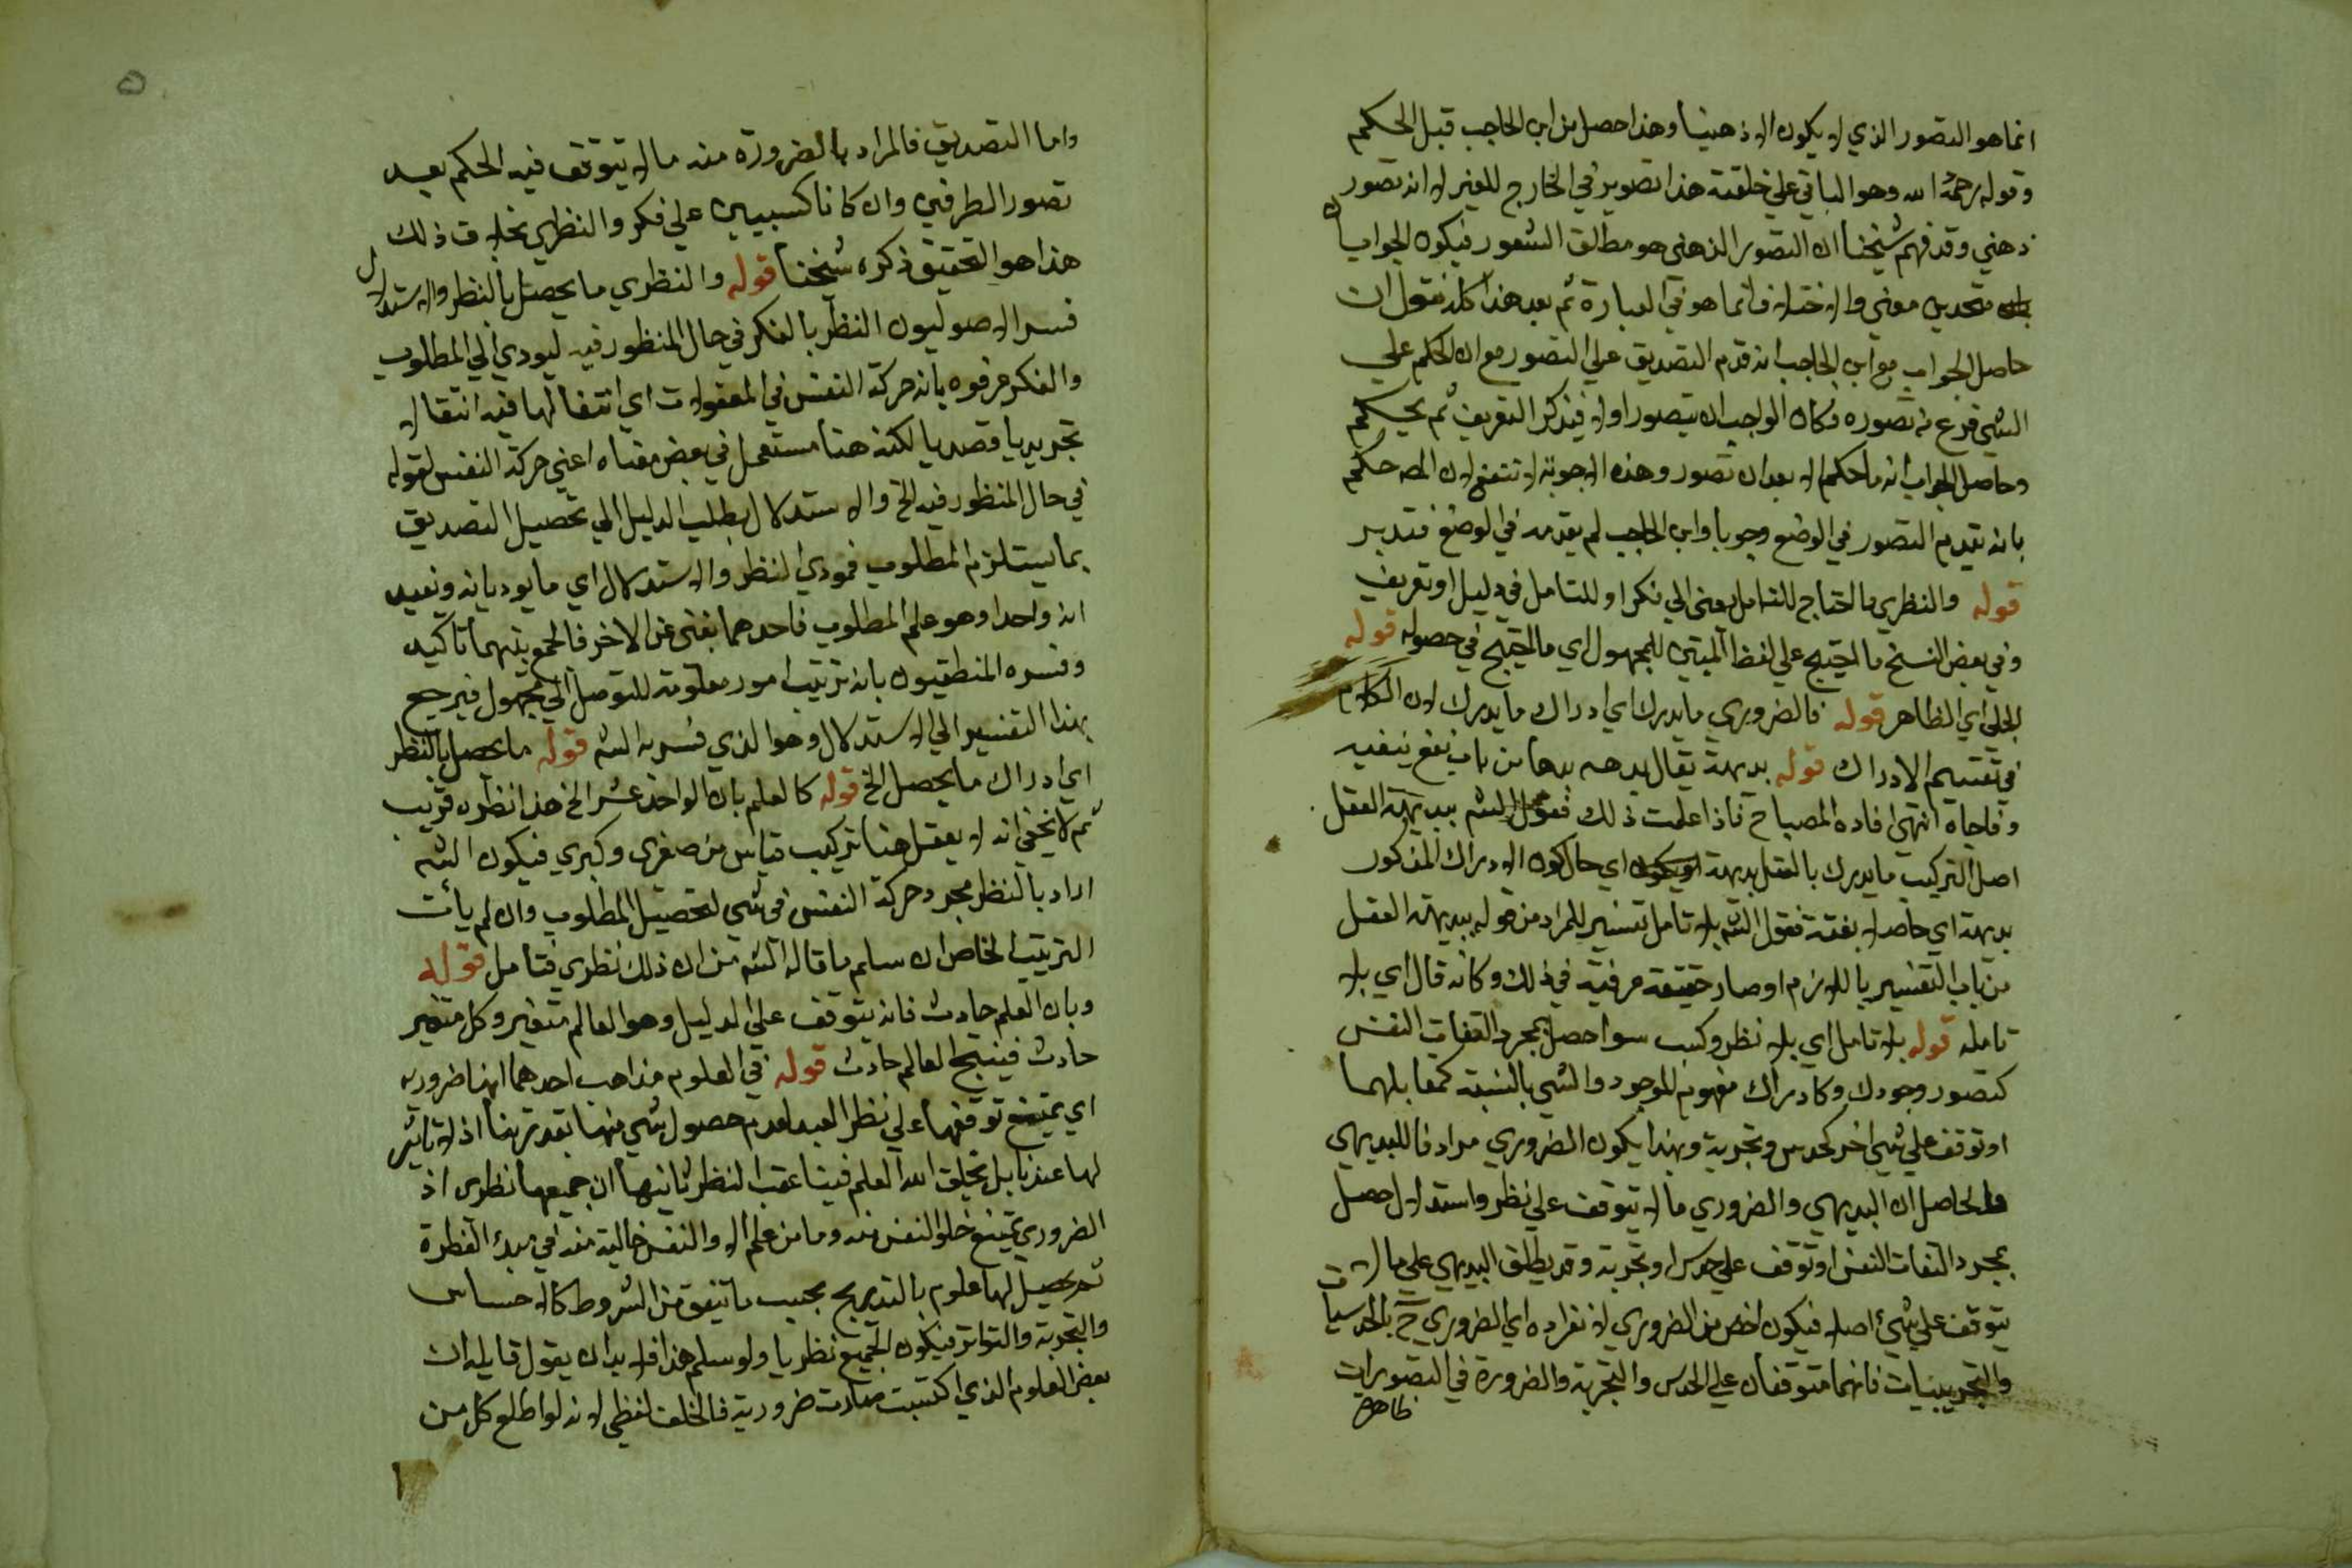 انما هو التصور الذي لا يكون الا ذهنيا وهذا حصل من ابن الحاجب قبل الحكم
وقوله رحمه الله وهو الباقي علي خلقته هذا تصوير في الخارج للغير لا انه تصور
ذهني وقد فهم شيخنا ان التصور الذهني هو مطلق الشعور فيكون الجوابان
متحدين معني والاختلاف انما هو في العبارة ثم بعد هذا كله نقول ان
حاصل الجواب مع ابن الحاجب انه قدم التصديق علي التصور مع ان الحكم علي
الشي فرع عن تصوره فكان الواجب ان يتصور اولا فيذكر التعريف ثم يحكم
وحاصل الجواب انه ما حكم الا بعد ان تصور وهذه الاجوبة لا تنفع لان المص حكم
بانه تقديم التصور في الوضع وجوبا وابن الحاجب لم يقدمه في الوضع فتدبر
قوله والنظري ما احتاج للتامل يعني الي فكر او للتامل في دليل او تعريف
وفي بعض النسخ ما احتيج علي لفظ المبني للمجهول اي ما احتيج في حصوله قوله
الجلي اي الظاهر قوله فالضروري ما يدرك اي ادراك ما يدرك لان الكلام
في تقسيم الادراك قوله بديهة يقال بدهه بدها من باب نفع بغته
وفاجاه انتهي افاده المصباح فاذا علمت ذلك فقول الش ببديهة العقل
اصل التركيب ما يدرك بالعقل بديهة اي حال كون الادراك المذكور
بديهة اي حاصلا بغتة فقول الش بلا تامل تفسير للمراد من قوله ببديهة العقل
من باب التفسير باللازم او صار حقيقة عرفية في ذلك وكانه قال اي بلا
تامله قوله بلا تامل اي بلا نظر وكسب سوا حصل بمجرد التفات النفس
كتصور وجودك وكادراك مفهوم للوجود والشي بالنسبة كمقابلهما
او توقف علي شي اخر كحدس وتجربة وبهذا يكون الضروري مرادفا للبديهي
والحاصل ان البديهي والضروري ما لا يتوقف علي نظر واستدلال حصل
بمجرد التفات النفس او توقف علي حدس او تجربة وقد يطلق البديهي علي ما لا
يتوقف علي شيء اصلا فيكون اخص من الضروري لانفراده اي الضروري ح بالحدسيات
والتجريبيات فانهما متوقفان علي الحدس والتجربة والضرورة في التصورات
ظاهرة
٥
واما التصديق فالمراد بالضرورة منه ما لا يتوقف فيه الحكم بعد
تصور الطرفين وان كانا كسبيين علي فكر والنظري بخلاف ذلك
هذا هو التحقيق ذكره شيخنا قوله والنظري ما يحصل بالنظر والاستدلال
فسر الاصوليون النظر بالفكر في حال المنظور فيه ليودي الي المطلوب
والفكر عرفوه بانه حركة النفس في المعقولات اي انتقالها فيه انتقالا
تجريديا قصديا لكنه هنا مستعمل في بعض معناه اعني حركة النفس لقوله
في حال المنظور فيه الخ والاستدلال بطلب الدليل الي تحصيل التصديق
بما يستلزم المطلوب فمودي النظر والاستدلال اي ما يوديانه ونفيد
انه واحدا وهو علم المطلوب فاحدهما يغني عن الاخر فالجمع بينهما تاكيد
وفسره المنطقيون بانه ترتيب امور معلومة للتوصل الي مجهول فيرجع
بهذا التفسير الي الاستدلال وهو الذي فسر به الش قوله ما يحصل بالنظر
اي ادراك ما يحصل الخ قوله كالعلم بان الواحد عشر الخ هذا نظره قريب
ثم لا يخفي انه لا يعقل هنا تركيب قياس من صغري وكبري فيكون الش
اراد بالنظر مجرد حركة النفس في شي لتحصيل المطلوب وان لم يات
الترتيب الخاص ان سلم ما قاله الش من ان ذلك نظري فتامل قوله
وبان العلم حادث فانه يتوقف علي الدليل وهو العالم متغير وكل متغير
حادث فينتج العالم حادث قوله في العلوم مذاهب احدهما انها ضرورية
اي يمتنع توقفها علي نظر العبد لعدم حصول شي منها بقدرتنا اذ لا تاثير
لها عندنا بل بخلق الله العلم فينا عقب النظر ثانيها ان جميعها نظري اذ
الضروري يمتنع خلو النفس منه وما من علم الا والنفس خالية منه في مبدا الفطرة
ثم يحصيل لها علوم بالتدريج بحسب ما يتفق من الشروط كالاحساس
والتجربة والتواتر فيكون الجميع نظريا ولو سلم هذا فلا بد ان يقول قايله ان
بعض العلوم الذي اكتسبت صارت ضرورية فالخلف لفظي لانه لو اطلع كل من